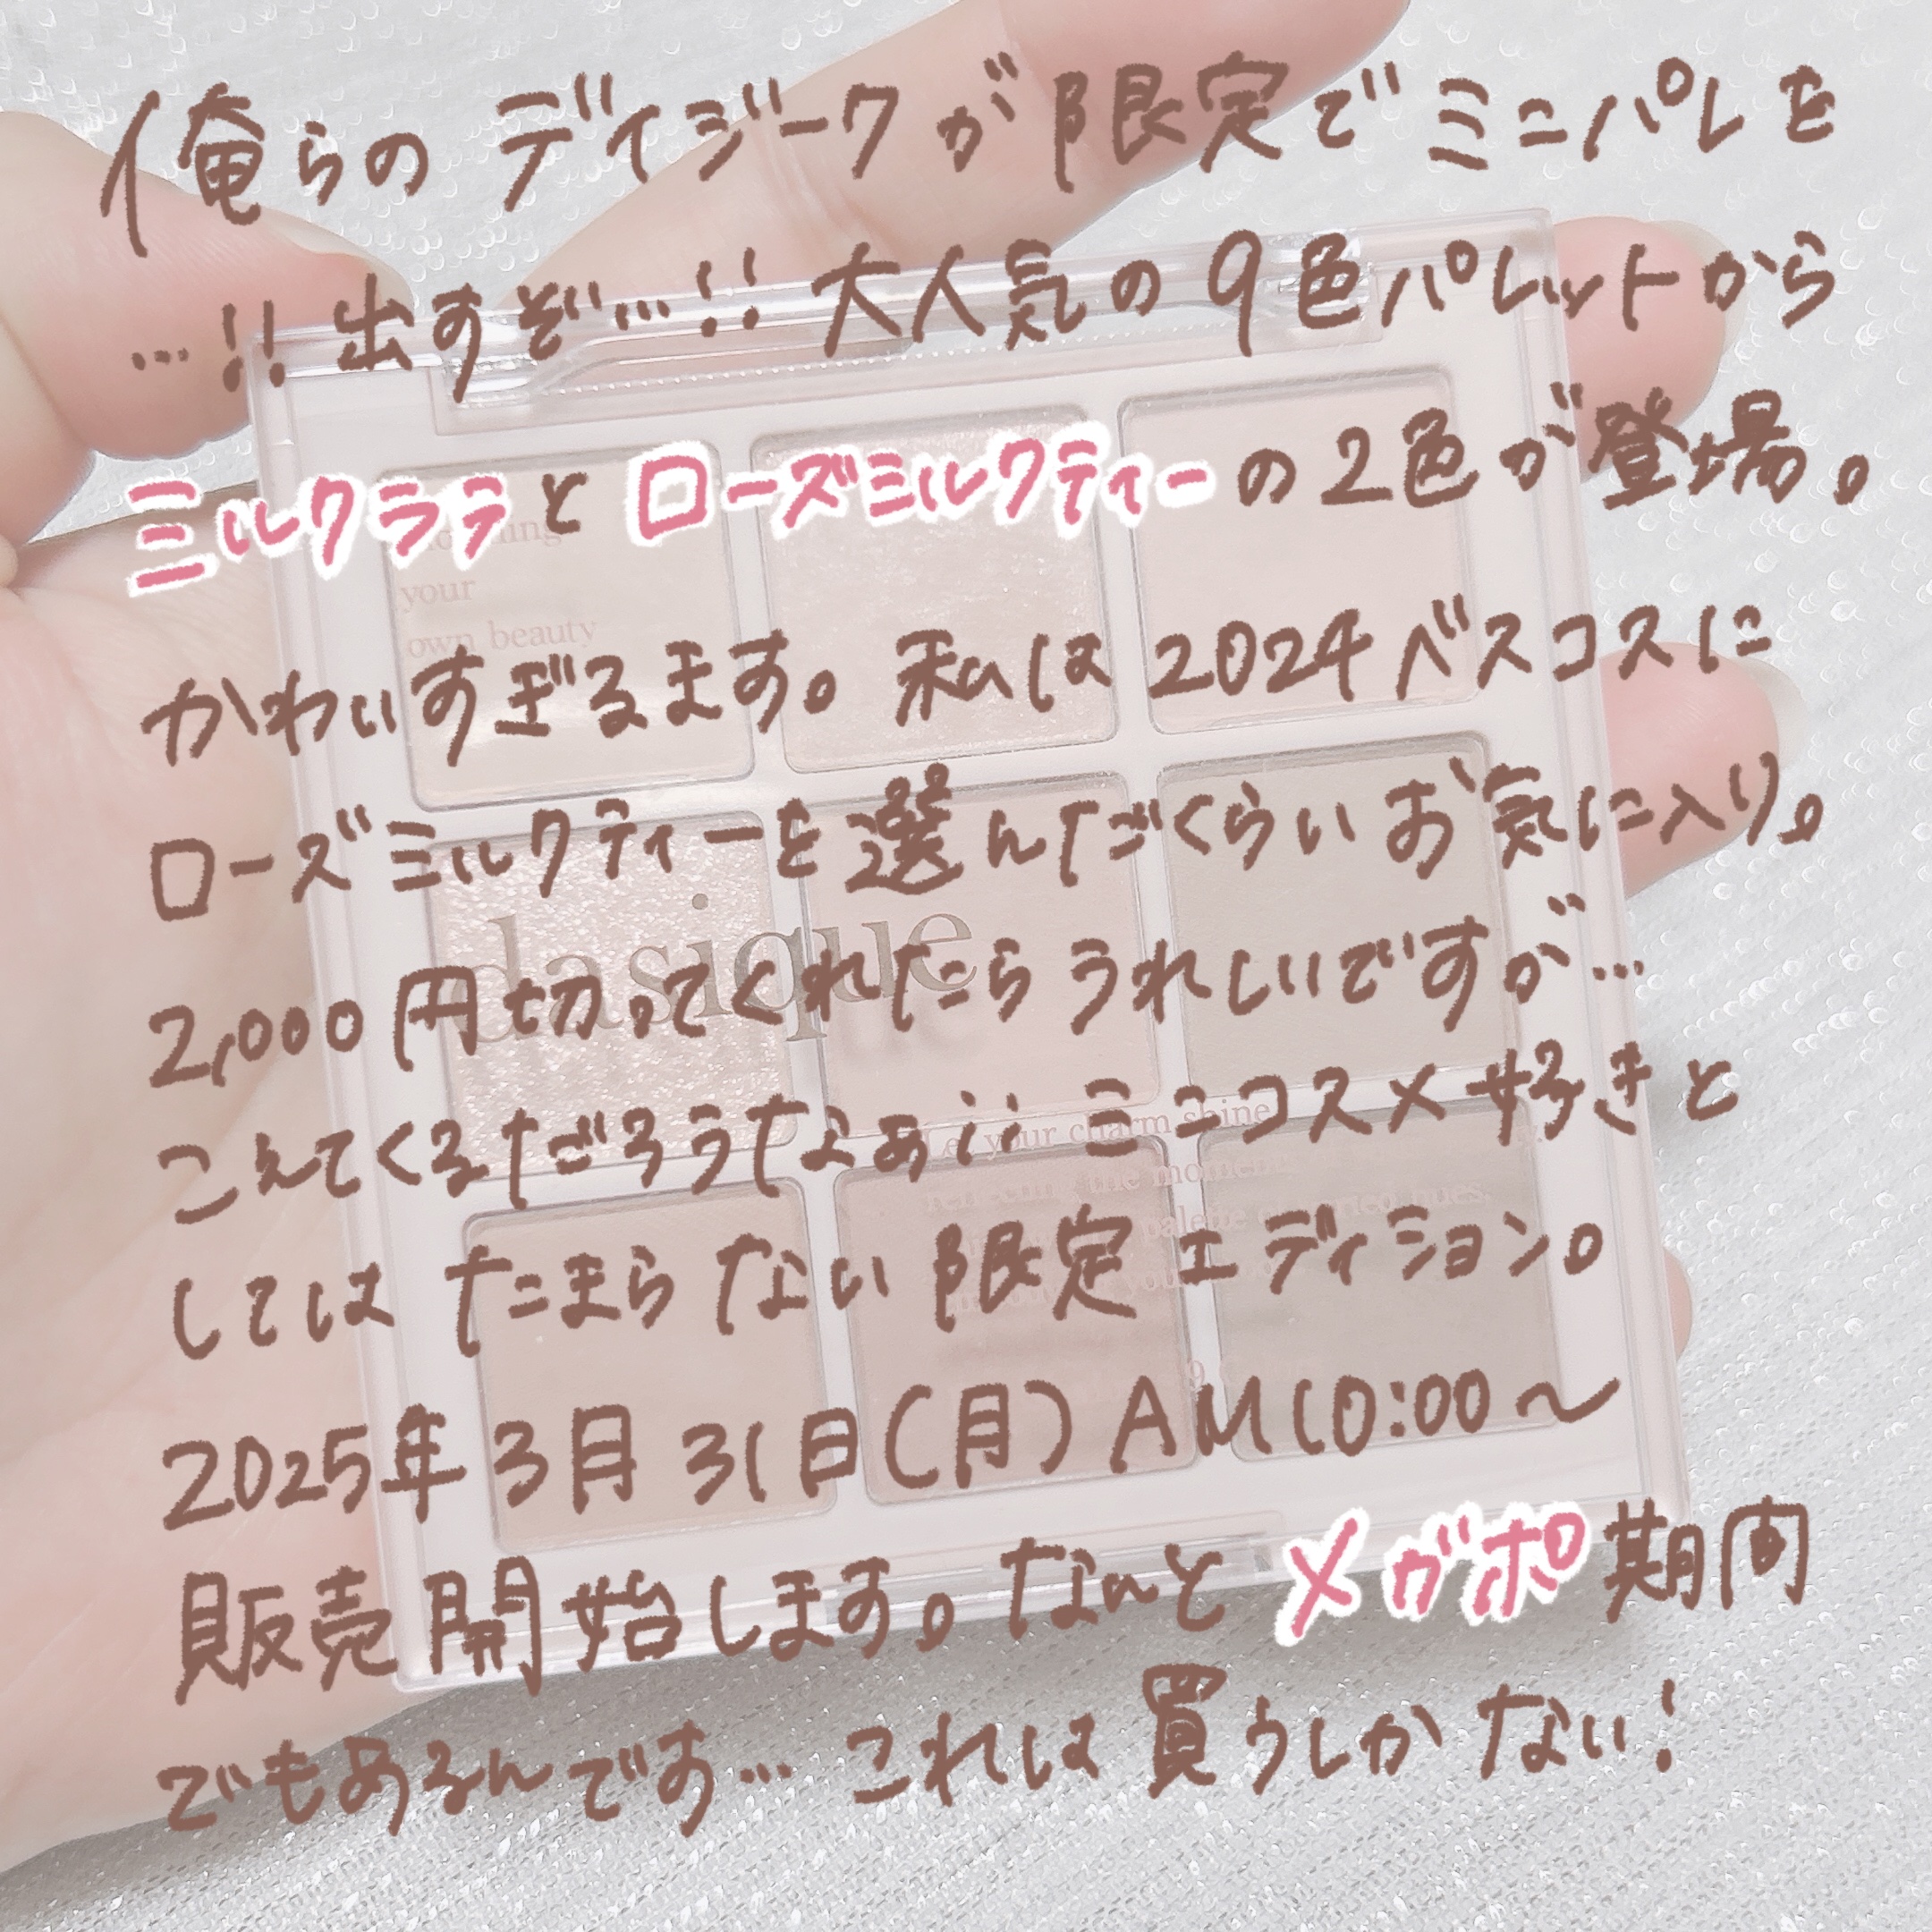 俺らのデイジークが限定でミニパレを
…!! 出すぞ…!! 大人気の9色パレットから
ミルクラテとローズミルクティーの2色が登場。
your
own beauty
かわいすぎるます。私は2024ベスコスに
ローズミルクティーを選んだくらいお気に入り。
dasique
2,000円切ってくれたらうれしいですが…
こえてくるだろうなぁ;; ミニコスメ好きと
Let your charm shine
しては たまらない 限定エディション。
2025年3月31日(月)AM10:00〜
販売開始します。なんとメガポ期間
でもあるんです… これは買うしかない!